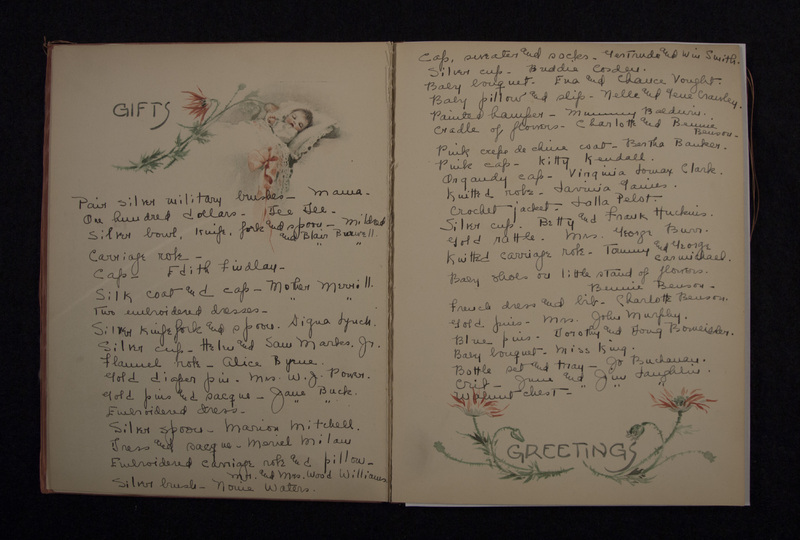 GIFTS
Pair silver military brushes - Mama -
One hundred dollars -
Silver bowl, knife, fork and spoon - Mildred
and Blair Braswell.
Carriage robe - " "
Cap - Edith Findlay -
Silk coat and cap - Mother Merrill.
Two embroidered dresses - " "
Silver knife fork and spoon. Signa Lynch.
Silver cup - Helen and Sam Marks, Jr.
Flannel robe - Alice Byrne.
Gold diaper pin. Mrs. W. J. Power.
Gold pins and sacque - Jane Buck.
Embroidered dress - " "
Silver spoon - Marion Mitchell.
Dress and sacque - Meriel Milam
Embroidered carriage robe and pillow -
Mr. and Mrs. Wood Williams
Silver brush - Noma Waters.
Cap, sweater and socks - Gertrude and Win Smith.
Silver cup - Buddie Cosden.
Baby bouquet. Eva and Chance Vought.
Baby pillow and slip - Nelle and Gene Crawley.
Painted hamper - Baldwin.
Cradle of flowers - Charlotte and Bennie
Benson -
Pink crepe de chine coat - Bertha Bunker.
Pink cap - Kitty Kendall.
Organdy cap - Virginia Lomax Clark.
Knitted robe - Lavinia Gaines.
Crochet jacket - Lalla Pelot -
Silver cup. Betty and Frank Huckins.
Gold rattle. Mrs. George Burr.
Knitted carriage robe - Tammy and George
Carmichael.
Baby shoes on little stand of flowers.
Bennie Benson -
French dress and bib - Charlotte Benson.
Gold pins - Mrs. John Murphy.
Blue pins - Dorothy and Doug Bomeisler.
Baby bouquet - Miss King.
Bottle set and tray - Jo Buchanan.
Crib - June and Jim Laughlin.
Walnut chest - " "
GREETINGS